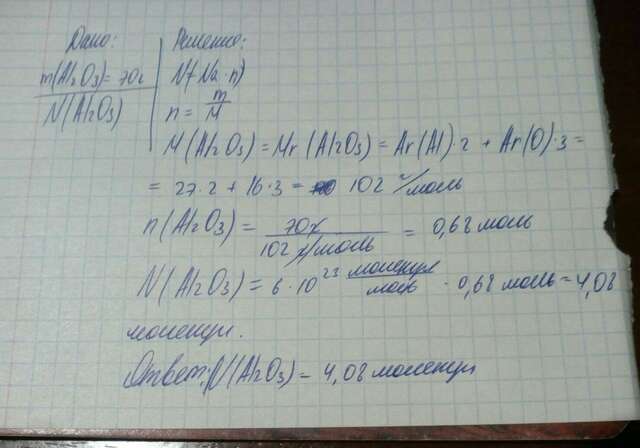 Дано:
m(Al2O3)=70г
N(Al2O3)
Решение:
N=Na·n
n = m/M
M(Al2O3)=Mr(Al2O3)=Ar(Al)·2 + Ar(O)·3=
= 27·2+16·3= 102 г/моль
n(Al2O3) = 70г/102 г/моль = 0,68 моль
N(Al2O3)=6·10²³ молекул/моль · 0,68 моль=4,08
молекул.
Ответ: N(Al2O3)= 4,08 молекул